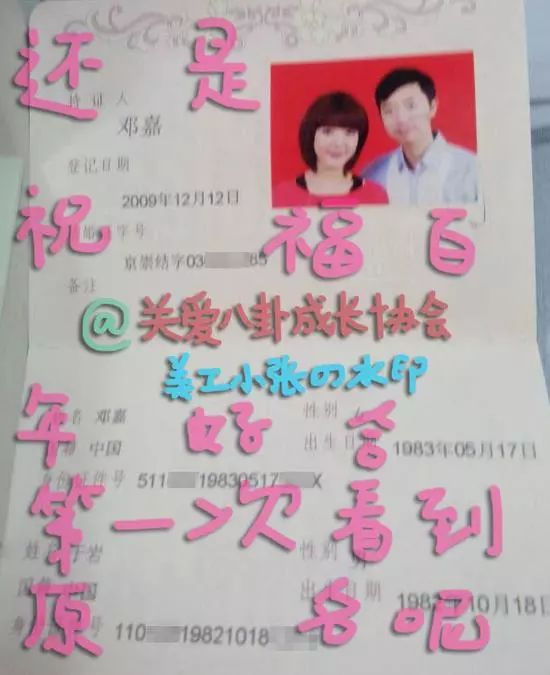 还是
持证人
邓嘉
登记日期
2009年12月12日
祝福百
字号
京崇结字03 85
备注
@关爱八卦成长协会
美工小张の水印
年好合
名 邓嘉 性别
中国 出生日期 1983年05月17日
身份证件号 511 19830517 X
第一次看到
姓 于岩 性别 男
国 中国 出生日期 1982年10月18日
原名呢
号 110 19821018